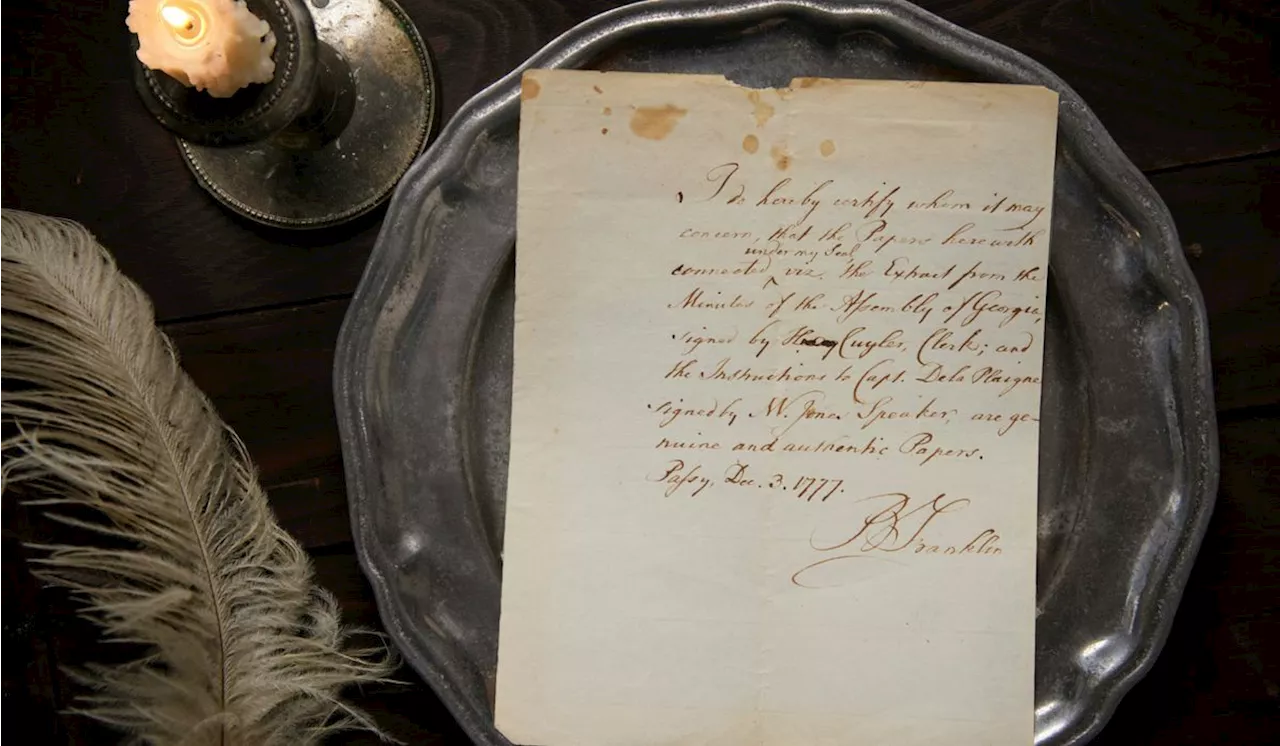 I do hereby certify whom it may
concern, that the Papers herewith
under my Seal
connected ^ viz. the Extract from the
Minutes of the Assembly of Georgia,
signed by Cuyler, Clerk; and
the Instructions to Capt. Dela Plaigne
signed by W. Jones Speaker, are ge-
nuine and authentic Papers.
Passy, Dec. 3. 1777.
B Franklin